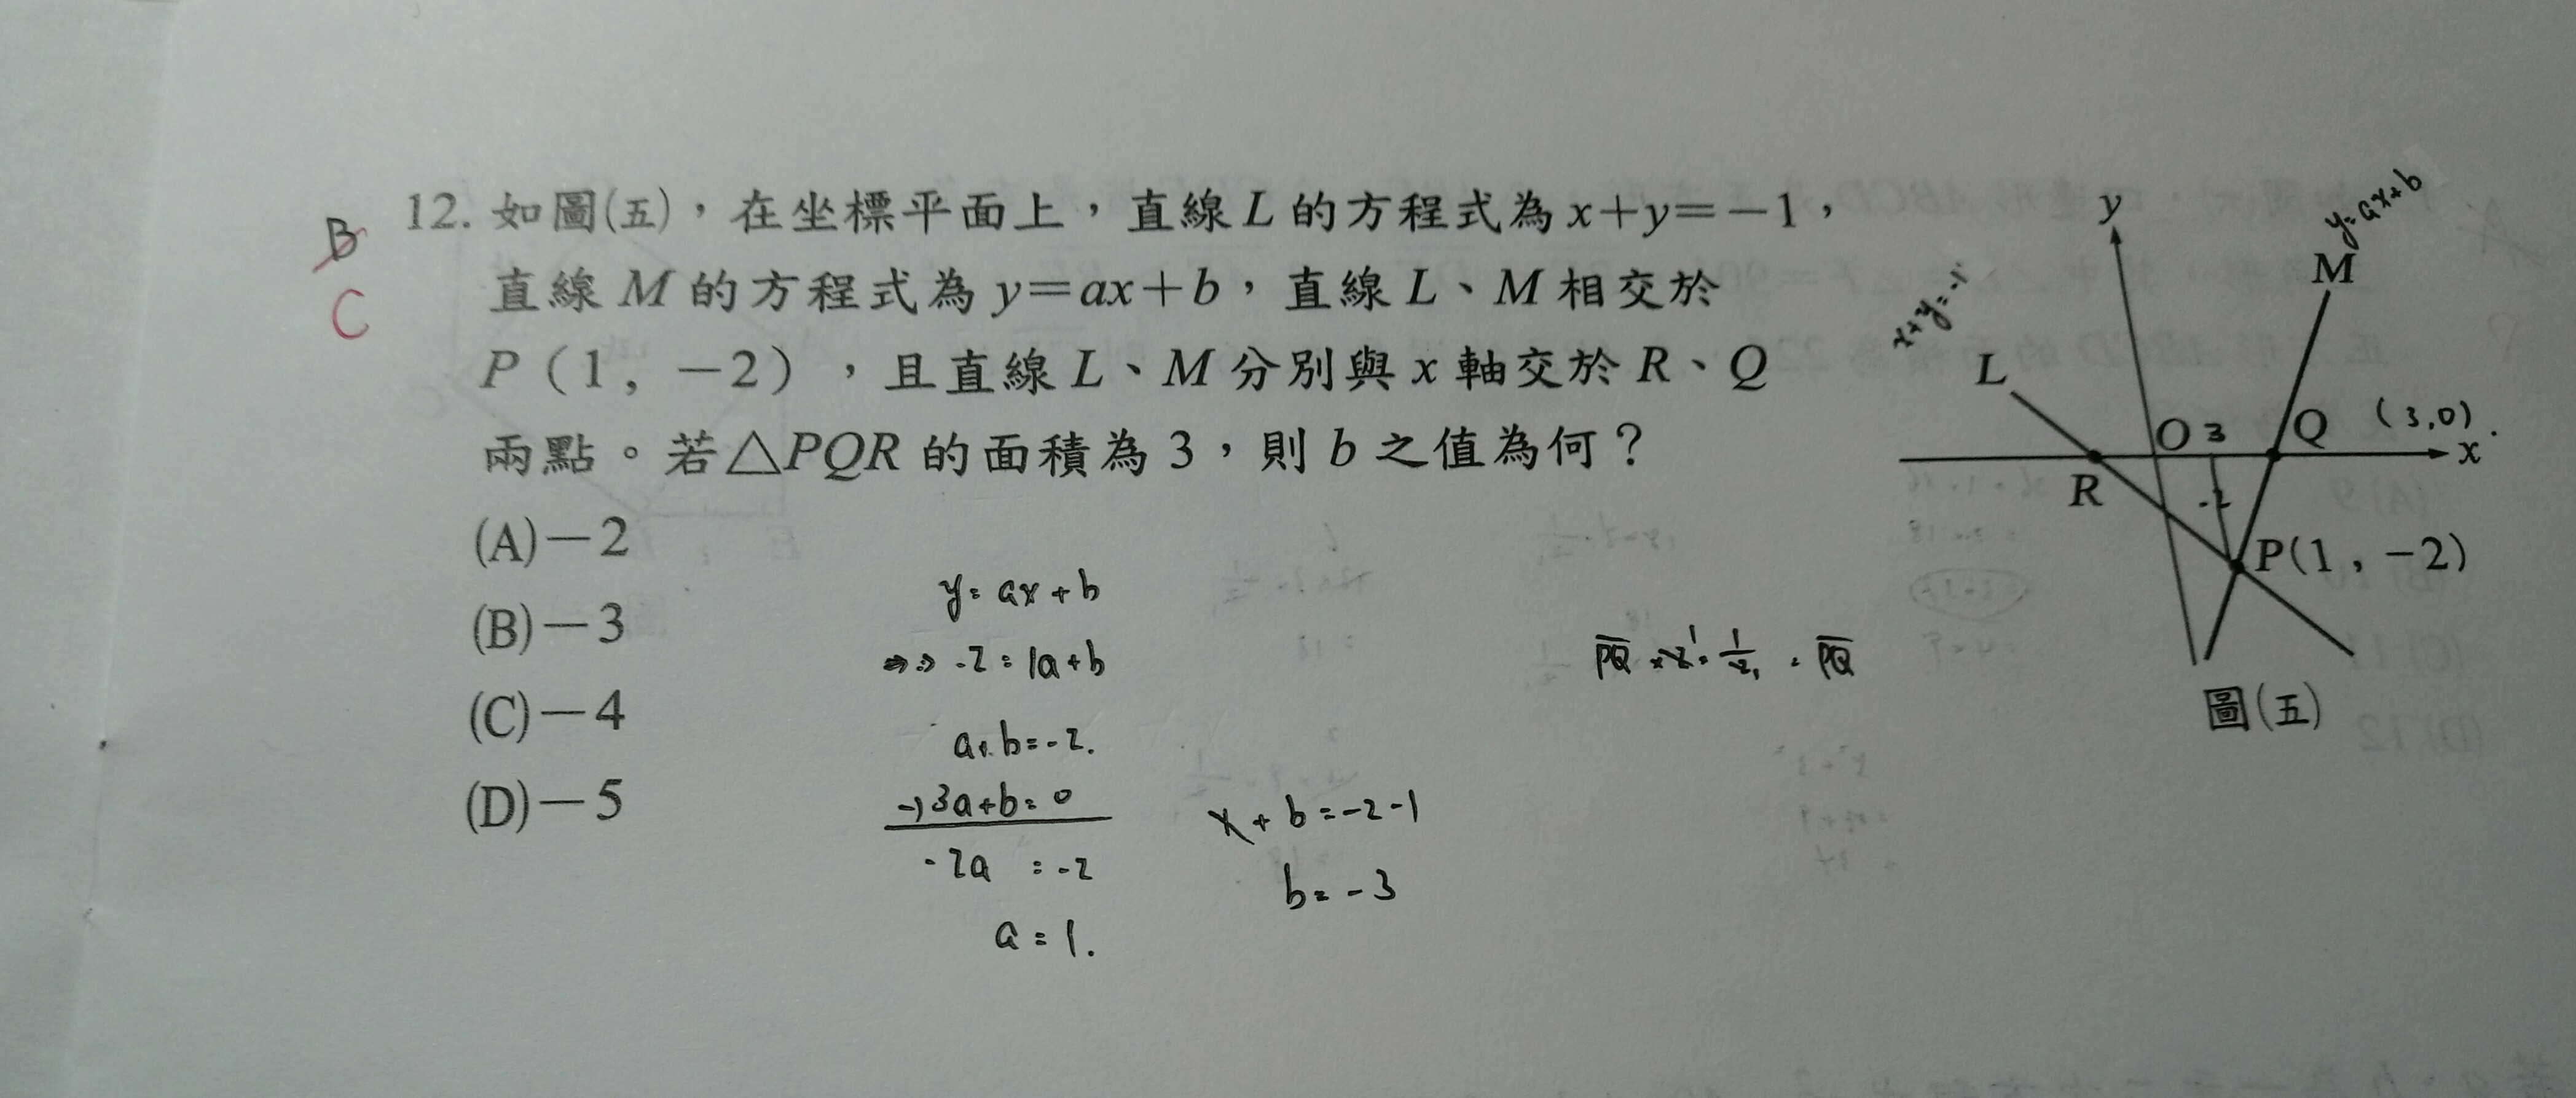 B
C
12. 如圖(五)，在坐標平面上，直線 L 的方程式為 x+y=−1，
直線 M 的方程式為 y=ax+b，直線 L、M 相交於
P（1，−2），且直線 L、M 分別與 x 軸交於 R、Q
兩點。若△PQR 的面積為 3，則 b 之值為何？
(A)−2
(B)−3
(C)−4
(D)−5
y=ax+b
⇒ -2=1a+b
a+b=-2.
-) 3a+b=0
-2a =-2
a=1.
x+b=-2-1
b=-3
y
y=ax+b
M
x+y=-1
L
O 3
Q
(3,0).
x
R
-2
P(1，−2)
圖(五)